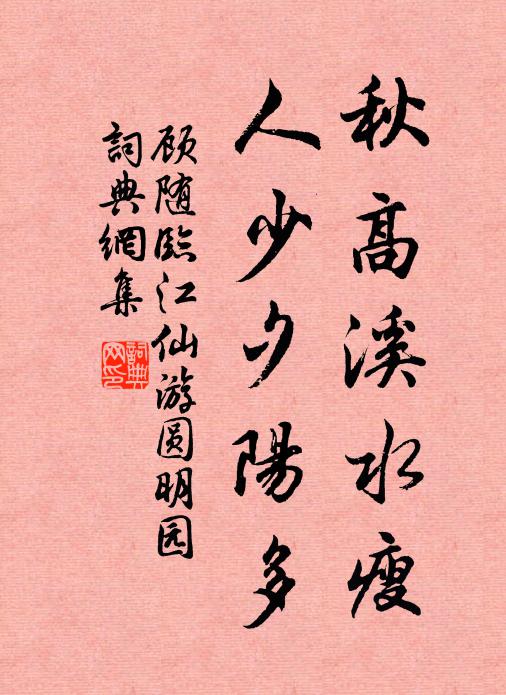 秋高溪水瘦
人少夕陽多
顾随臨江仙游圆明园
詞典網集
詞典網印